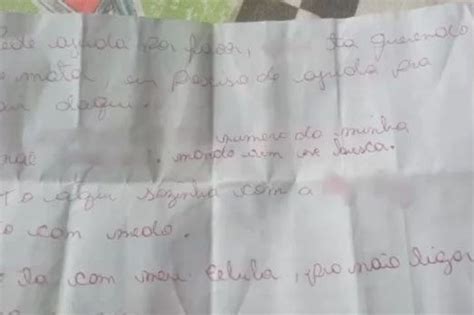 ede ajuda por favor, ta querendo
mata eu preciso de ajuda pra
daqui.
numero da minha
mãe manda vim me busca.
To aqui sozinha com a
to com medo.
ta com meu celula, pra não ligar